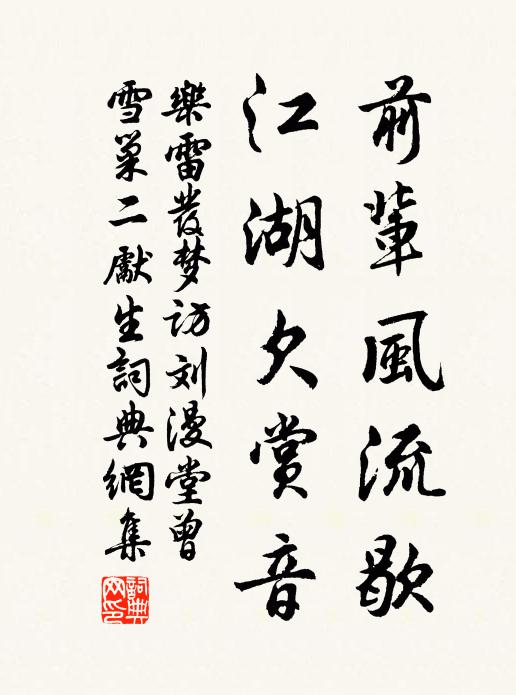 前輩風流歇
江湖欠賞音
樂雷發梦访刘漫堂曾
雪巢二獻生詞典網集
詞典网印